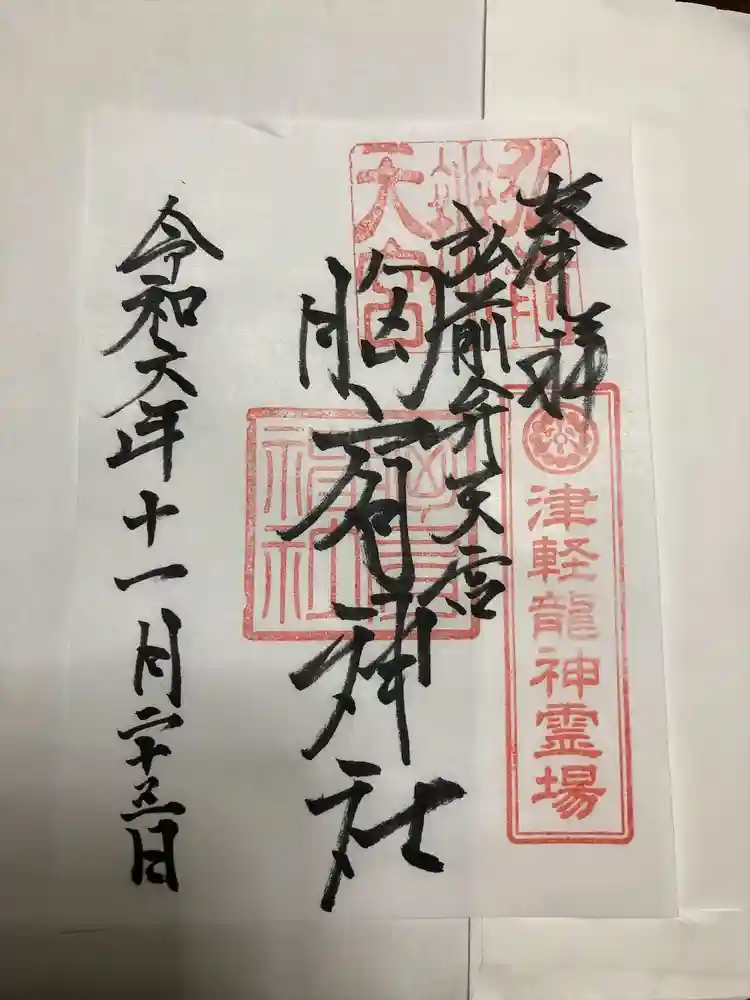 奉拝
津軽龍神霊場
弘前弁天宮
胸肩神社
胸肩神社
令和六年十一月二十三日